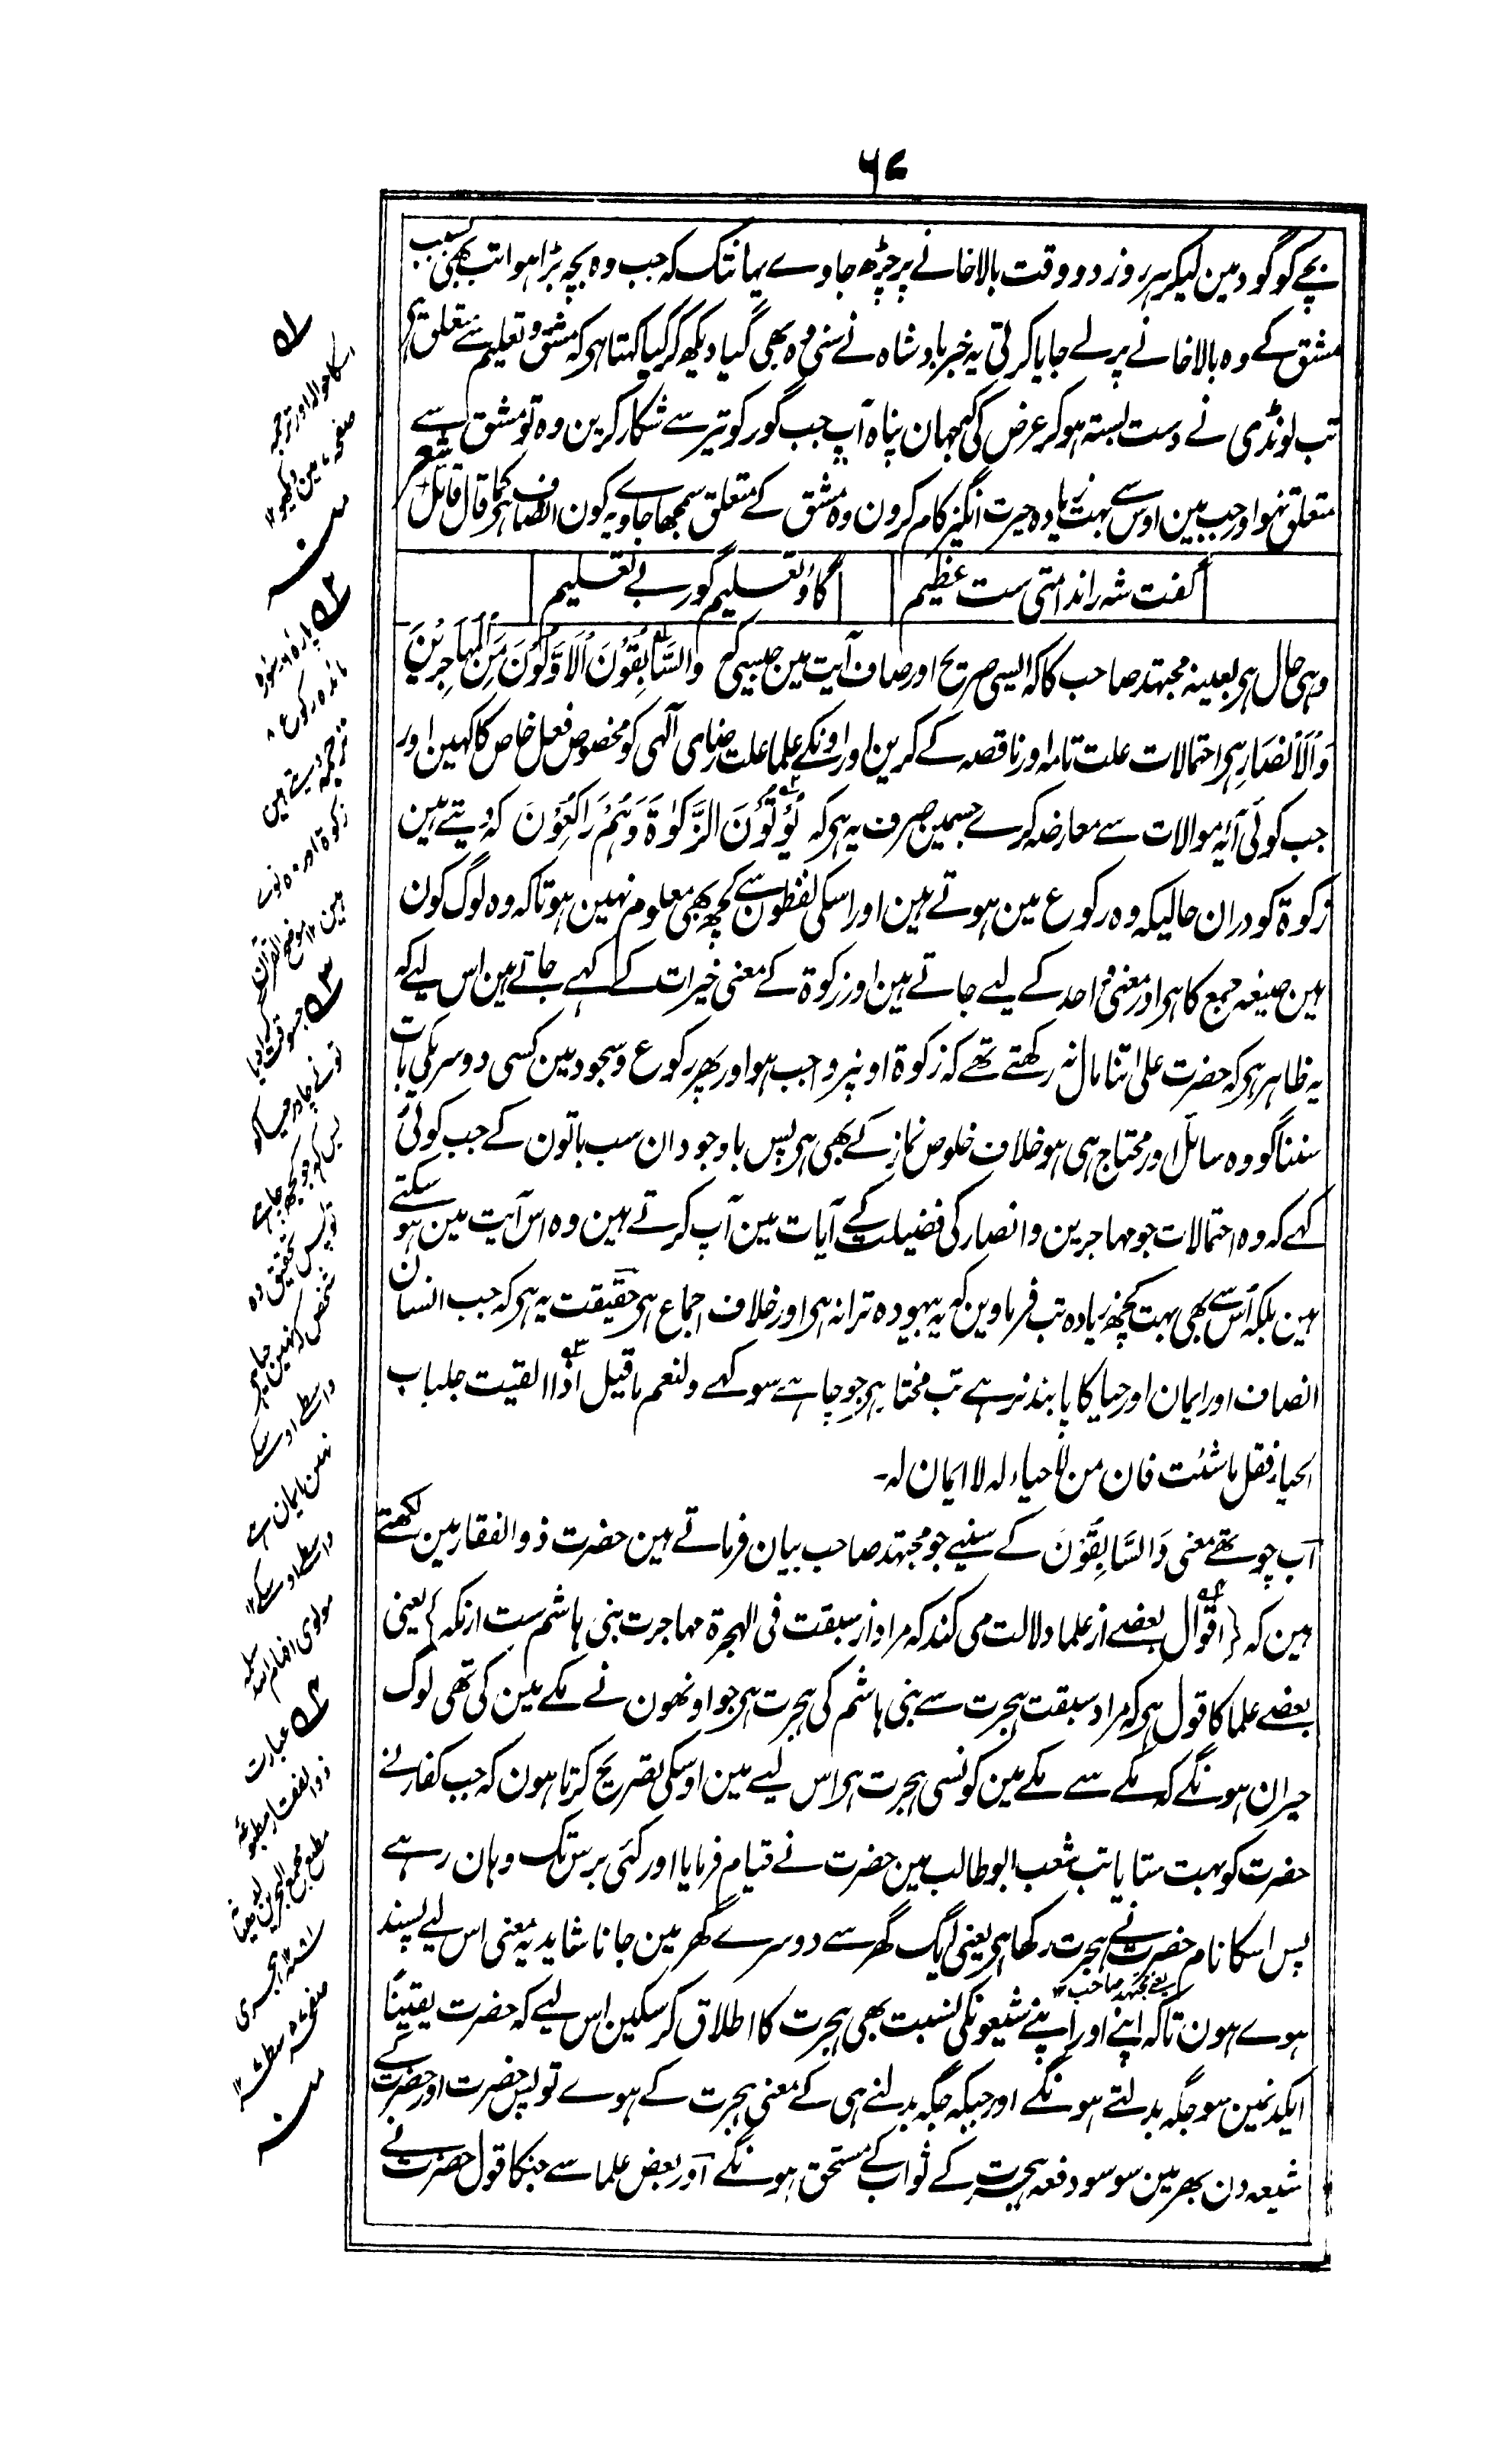 ۶۷
بچے کو گود مین لیکر ہر روز دو وقت بالاخانے پر چڑھ جاوے یہانتک کہ جب وہ بچہ بڑا ہوا تب بھی بسبب
مشق کے وہ بالاخانے پر لے جایا کرتی یہ خبر بادشاہ نے سنی وہ بھی گیا دیکھ کر کیا کہتا ہی کہ مشق و تعلیم سے متعلق ہی
تب لونڈی نے دست بستہ ہو کر عرض کی کہ جہان پناہ آپ جب گور کو تیر سے شکار کرین وہ تو مشق سے
متعلق نہو اور جب مین اوس سے بہت زیادہ حیرت انگیز کام کرون وہ مشق کے متعلق سمجھا جاوے یہ کون انصاف ہی کما قال قائل شعر
گفت شہ را ندامتی ست عظیم
گاؤ تعلیم گور بے تعلیم
وہی حال ہی بعینہ مجتہد صاحب کا کہ ایسی صریح اور صاف آیت مین جیسی کہ وَالسَّابِقُوْنَ الْاَوَّلُوْنَ مِنَ الْمُهَاجِرِيْنَ
وَالْاَنْصَارِ ہی احتمالات علت تامہ اور ناقصہ کے کرین اور اونکے علما علت رضاے الٰہی کو مخصوص فعل خاص کا کہین اور
جب کوئی آیۂ موالات سے معارضہ کرے جسمین صرف یہ ہی کہ يُؤْتُوْنَ الزَّكٰوةَ وَهُمْ رَاكِعُوْنَ کہ دیتے ہین
زکوۃ کو دران حالیکہ وہ رکوع مین ہوتے ہین اور اسکی لفظون سے کچھ بھی معلوم نہین ہوتا کہ وہ لوگ کون
ہین صیغہ جمع کا ہی اور معنی واحد کے لیے جاتے ہین اور زکوۃ کے معنی خیرات کے کہے جاتے ہین اس لیے کہ
یہ ظاہر ہی کہ حضرت علی اتنا مال نہ رکھتے تھے کہ زکوۃ اونپر واجب ہو اور پھر رکوع و سجود مین کسی دوسریکی بات
سننا گو وہ سائل اور محتاج ہی ہو خلاف خلوص نماز کے بھی ہی پس باوجود ان سب باتون کے جب کوئی
کہے کہ وہ احتمالات جو مہاجرین و انصار کی فضیلت کے آیات مین آپ کرتے ہین وہ اس آیت مین ہو سکتے
ہین بلکہ اس سے بھی بہت کچھ زیادہ تب فرماوین کہ یہ بیہودہ ترانہ ہی اور خلاف اجماع ہی حقیقت یہ ہی کہ جب انسان
انصاف اور ایمان اور حیا کا پابند نرہے تب مختار ہی جو چاہے سو کہے ولنعم ما قیل اذا القیت جلباب
الحیاء فقل ما شئت فان من لا حیاء لہ لا ایمان لہ۔
اب چوتھے معنی وَالسَّابِقُوْنَ کے سنیے جو مجتہد صاحب بیان فرماتے ہین حضرت ذو الفقار مین لکھتے
ہین کہ {اقوال بعضے از علما دلالت می کند کہ مراد از سبقت فی الہجرۃ مہاجرت بنی ہاشم ست از مکہ} یعنی
بعضے علما کا قول ہی کہ مراد سبقت ہجرت سے بنی ہاشم کی ہجرت ہی جو اونھون نے مکے مین کی تھی لوگ
حیران ہونگے کہ مکے سے مکے مین کونسی ہجرت ہی اس لیے مین اوسکی تصریح کرتا ہون کہ جب کفار نے
حضرت کو بہت ستایا تب شعب ابوطالب مین حضرت نے قیام فرمایا اور کئی برس تک وہان رہے
پس اسکا نام حضرت نے ہجرت رکھا ہی یعنی ایک گھر سے دوسرے گھر مین جانا شاید یہ معنی اس لیے پسند
یعنے مجتہد صاحب ۱۲
ہوے ہون تاکہ اپنے اور اپنے شیعونکی نسبت بھی ہجرت کا اطلاق کر سکین اس لیے کہ حضرت یقیناً
ایکدنمین سو جگہ بدلتے ہونگے اور جبکہ جگہ بدلنے ہی کے معنی ہجرت کے ہوے تو پس حضرت اور حضرت کے
شیعہ دن بھر مین سو سو دفعہ ہجرت کے ثواب کے مستحق ہونگے اور بعض علما سے جنکا قول حضرت نے
۱ہ
اسکا حوالہ اور ترجمہ
صفحہ مین دیکھو ۱۲
منہ
۲ہ پارہ ۶ سورہ
مائدہ رکوع ۸
ترجمہ دیتے ہین
زکوۃ اور وہ نوے
ہین ۱۲ موضح القرآن
۳ہ جسوقت گرا دیا
تونے چادر حیا کو
پس کہ جو کچھ چاہے
تو پس تحقیق وہ
شخص کہ نہین حیا ہی
واسطے اوسکے
نہین ایمان ہے
واسطے اوسکے ۱۲
مولوی انعام اللہ سلمہ
۴ہ عبارت
ذوالفقار مطبوعہ
مطبع مجمع البحرین لدھیانہ
۱۲۸۱ ہجری
صفحہ سطر ۱۲
منہ